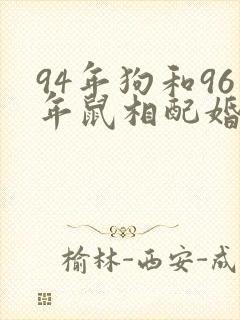 94年狗和96
年鼠相配婚
榆林-西安-成